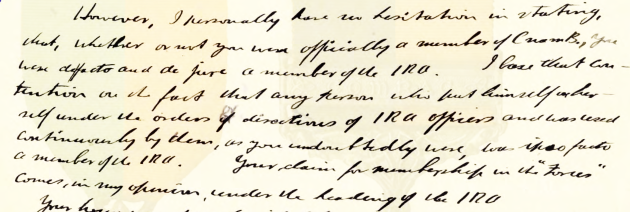 However, I personally have no hesitation in stating,
that, whether or not you were officially a member of Cnamb, you
were defacto and de jure a member of the IRA. I base that con-
tention on the fact that any person who put himself or her-
self under the orders of directions of IRA officers and was used
continuously by them, as you undoubtedly were, was ipso facto
a member of the IRA. Your claim for membership in the "Forces"
comes, in my opinion, under the heading of the IRA
Your